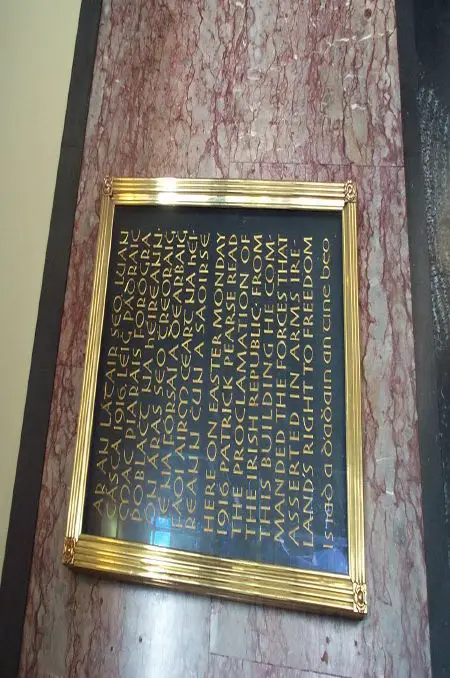 AR AN LÁṪAIR SEO LUAN
CÁSCA 1916 LÉIĠ PÁDRAIC
MAC PIARAIS FORÓGRA
POBLAĊT NA hÉIREANN
ÓN ÁRAS SEO ṪREORAIĠ
SÉ NA FÓRSAÍ A ḊEARḂAIĠ
FAOI AIRM CEART NA hÉI-
REANN ĊUN A SAOIRSE
HERE ON EASTER MONDAY
1916 PATRICK PEARSE READ
THE PROCLAMATION OF
THE IRISH REPUBLIC. FROM
THIS BUILDING HE COM-
MANDED THE FORCES THAT
ASSERTED IN ARMS IRE-
LANDS RIGHT TO FREEDOM
IS IAD A D'ADAIN AN TINE BEO